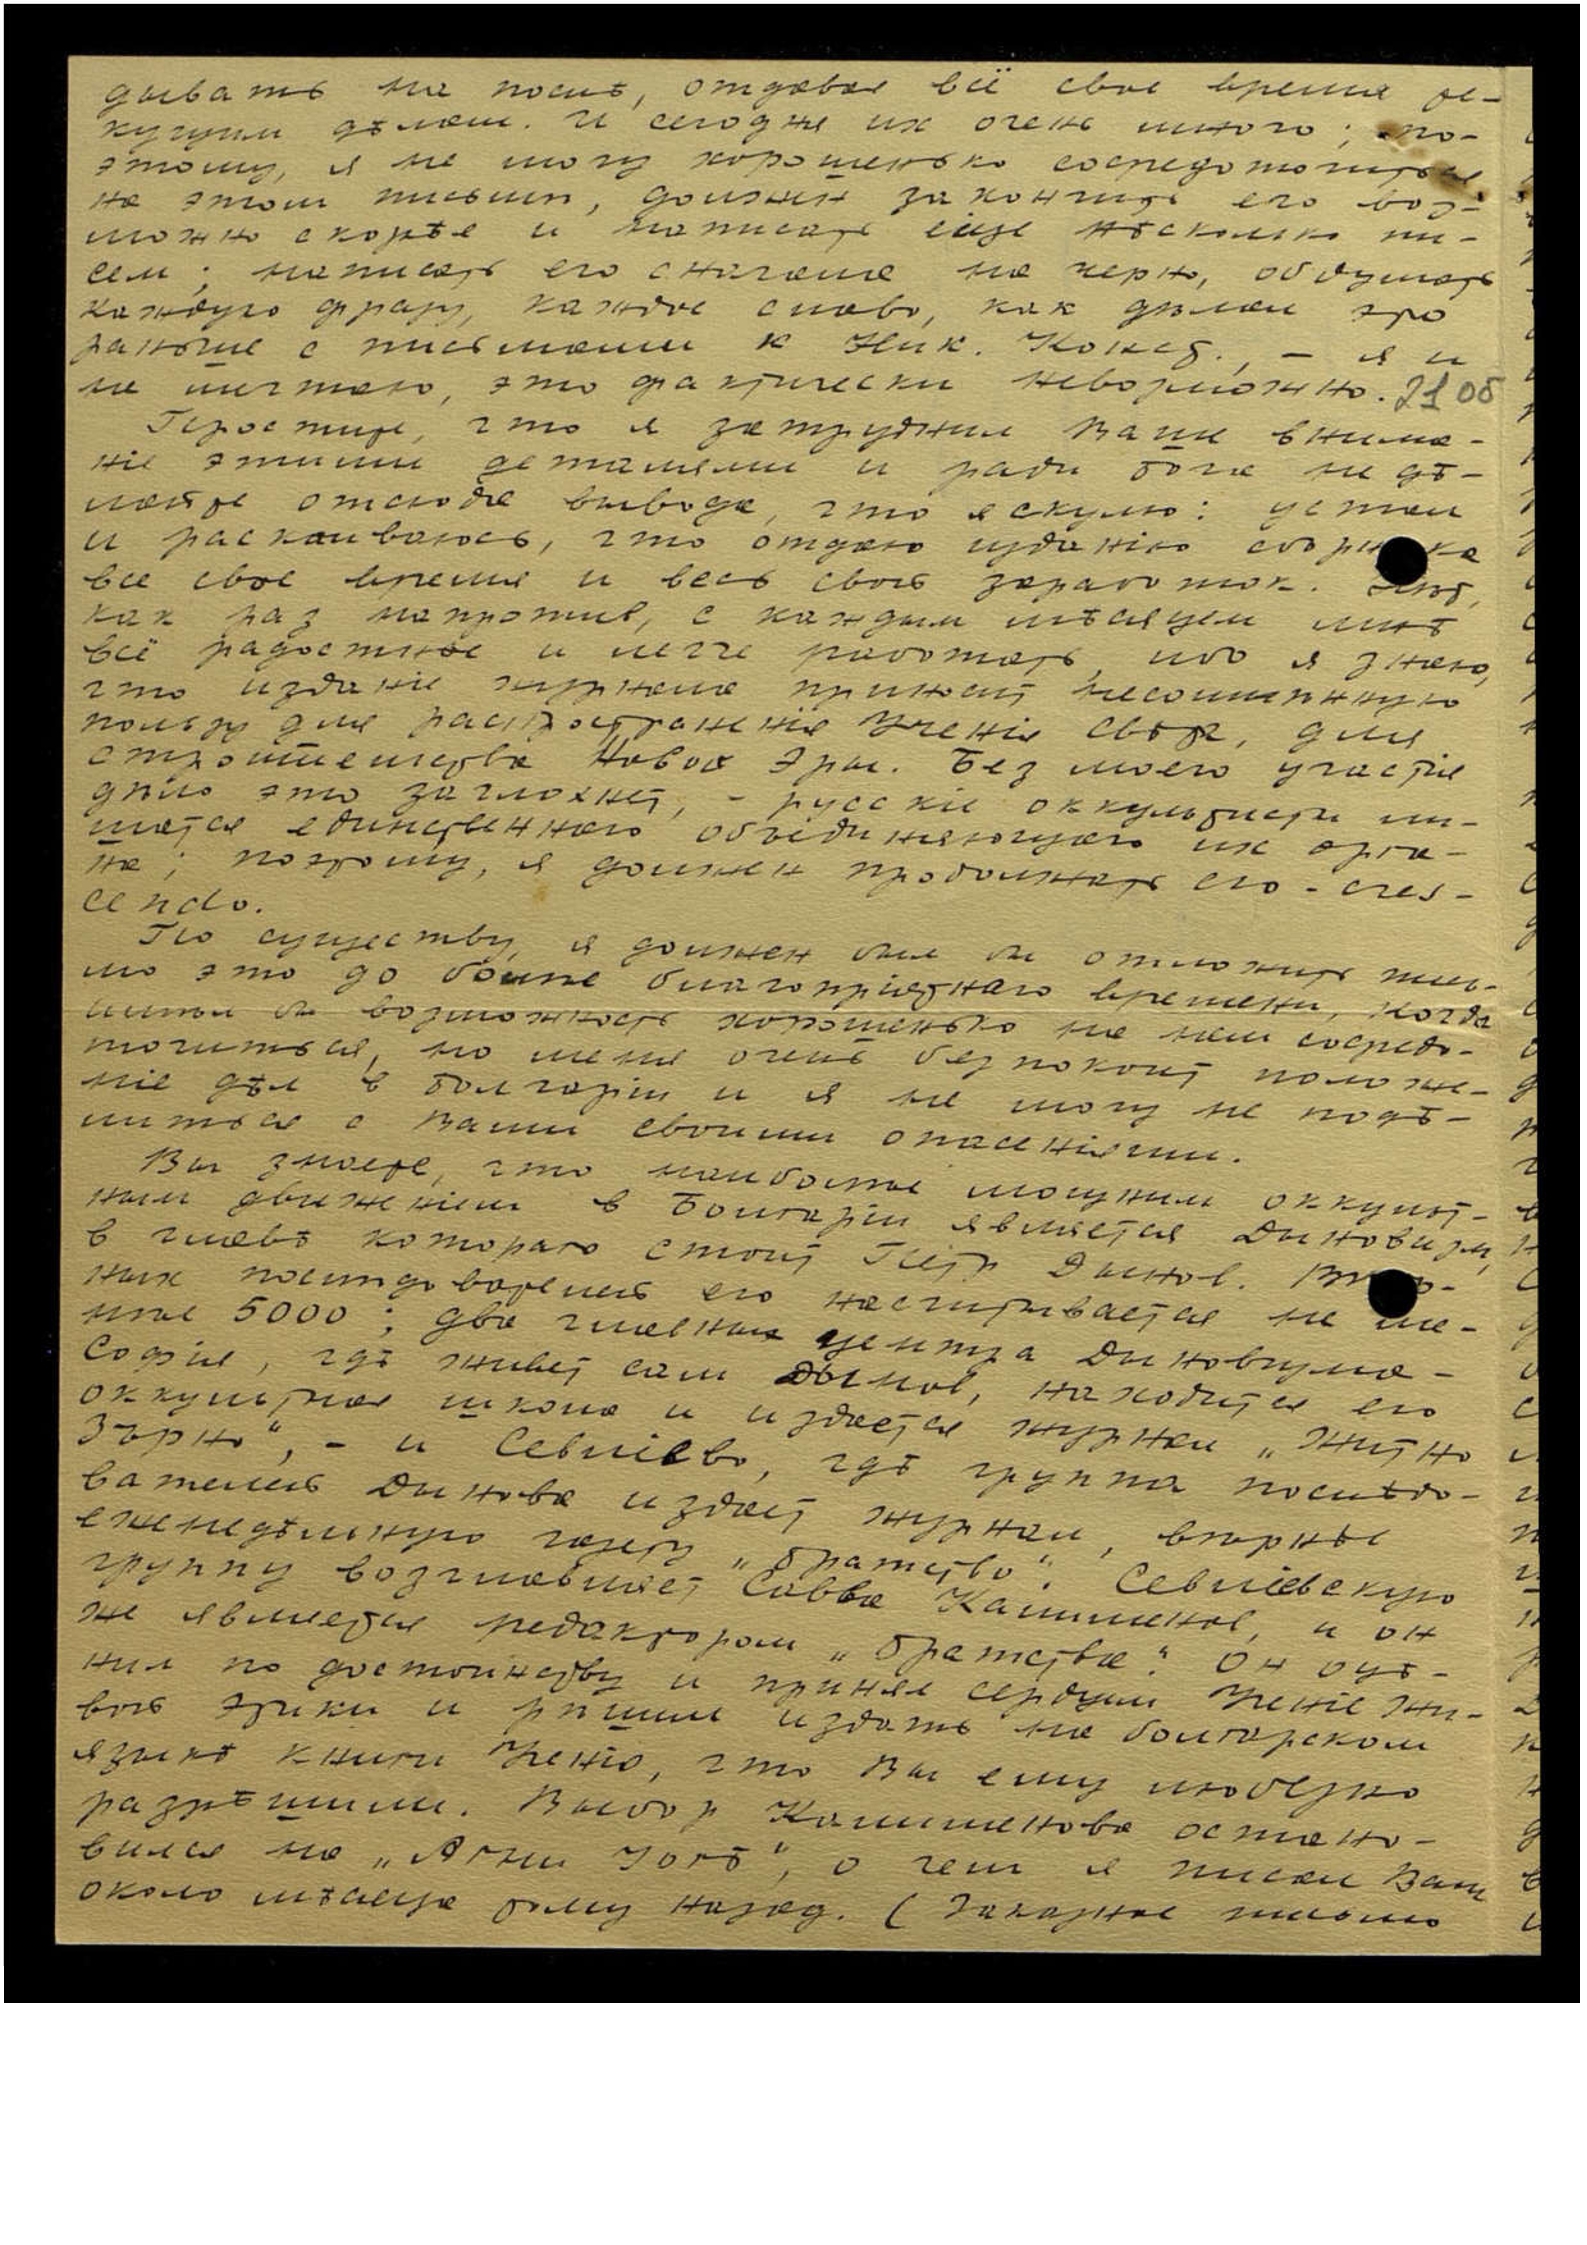 дывать на послѣ, отдавая всё свое время те-
кущим дѣлам. И сегодня их очень много; по-
этому, я не могу хорошенько сосредоточиться
на этом письмѣ, должен закончить его воз-
можно скорѣе и написать еще нѣсколько пи-
сем; написать его сначала на черно, обдумать
каждую фразу, каждое слово, как дѣлал это
раньше с письмами к Ник. Конст., – я и
не мечтаю, это фактически невозможно. 21 об
Простите, что я затруднил Ваше внима-
ніе этими деталями и ради бога не дѣ-
лайте отсюда вывода, что я скулю: устал
и раскаиваюсь, что отдаю изданію сборника
все свое время и весь свой заработок. Нѣт,
как раз напротив, с каждым мѣсяцем мнѣ
всё радостнѣе и легче работать, ибо я знаю,
что изданіе журнала приносит несомнѣнную
пользу для распространенія Ученія Свѣта, для
строительства Новой Эры. Без моего участія
дѣло это заглохнет, – русскіе оккультисты ли-
шатся единственнаго объединяющаго их орга-
на; поэтому, я должен продолжать его - cres-
cendo.
По существу, я должен был бы отложить пись-
мо это до болѣе благопріятнаго времени, когда
имѣл бы возможность хорошенько на нем сосредо-
точиться, но меня очень безпокоит положе-
ніе дѣл в Болгаріи и я не могу не подѣ-
литься с Вами своими опасеніями.
Вы знаете, что наиболѣе мощным оккульт-
ным движеніем в Болгаріи является Дыновизм,
в главѣ котораго стоит Петр Дынов. Вѣр-
ных послѣдователей его насчитывается не ме-
нѣе 5000; два главных центра Дыновизма -
Софія, гдѣ живет сам Дынов, находится его
оккультная школа и издается журнал „Житно
Зърно“, – и Севліево, гдѣ группа послѣдо-
вателей Дынова издает журнал, вѣрнѣе
еженедѣльную газету „Братство“. Севліевскую
группу возглавляет Савва Калименов, и он
же является редактором „Братства“. Он оцѣ-
нил по достоинству и принял сердцем Ученіе Жи-
вой Этики и рѣшил издать на болгарском
языкѣ книги Ученія, что Вы ему любезно
разрѣшили. Выбор Калименова остано-
вился на „Агни Іогѣ“, о чем я писал Вам
около мѣсяца тому назад. (Заказное письмо